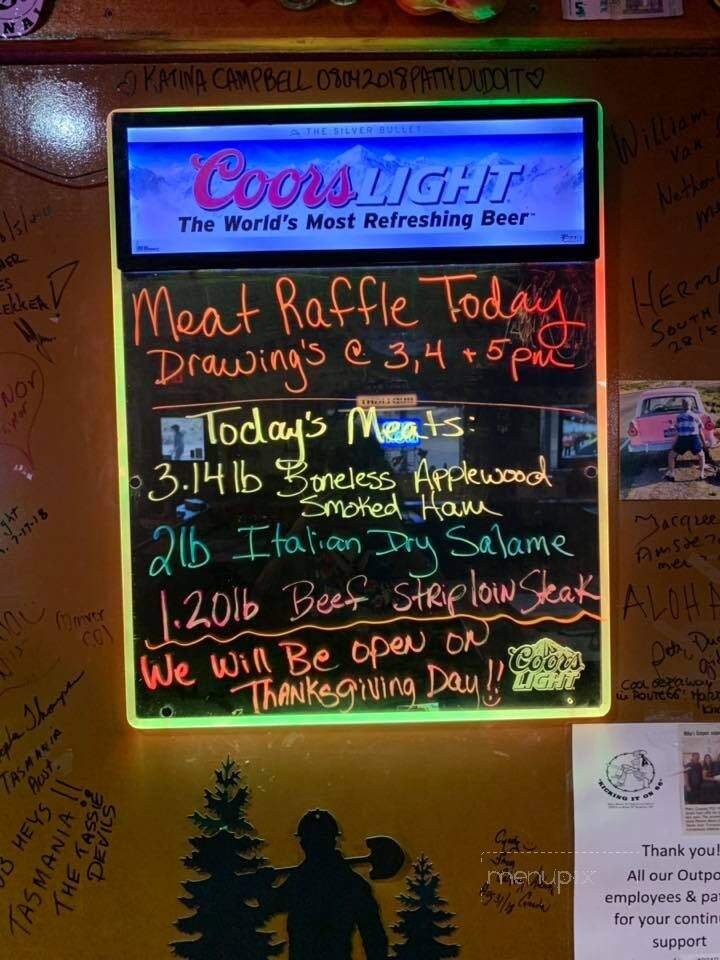 KATINA CAMPBELL 08042018 PATTY DUDOIT
THE SILVER BULLET
Coors LIGHT
The World's Most Refreshing Beer
Meat Raffle Today
Drawing's @ 3,4 + 5 pm
Today's Meats:
3.14 lb Boneless Applewood
Smoked Ham
2lb Italian Dry Salame
1.20lb Beef Striploin Steak
We Will Be open on
Thanksgiving Day!!
Coors
LIGHT
William
Van
HERM
SOUTH
ALOHA
TASMANIA
Aust.
HEYS!!
TASMANIA
THE TASSIE
DEVILS
KICKING IT ON 66
Thank you!
All our Outpo
employees & pa
for your contin
support
menupix